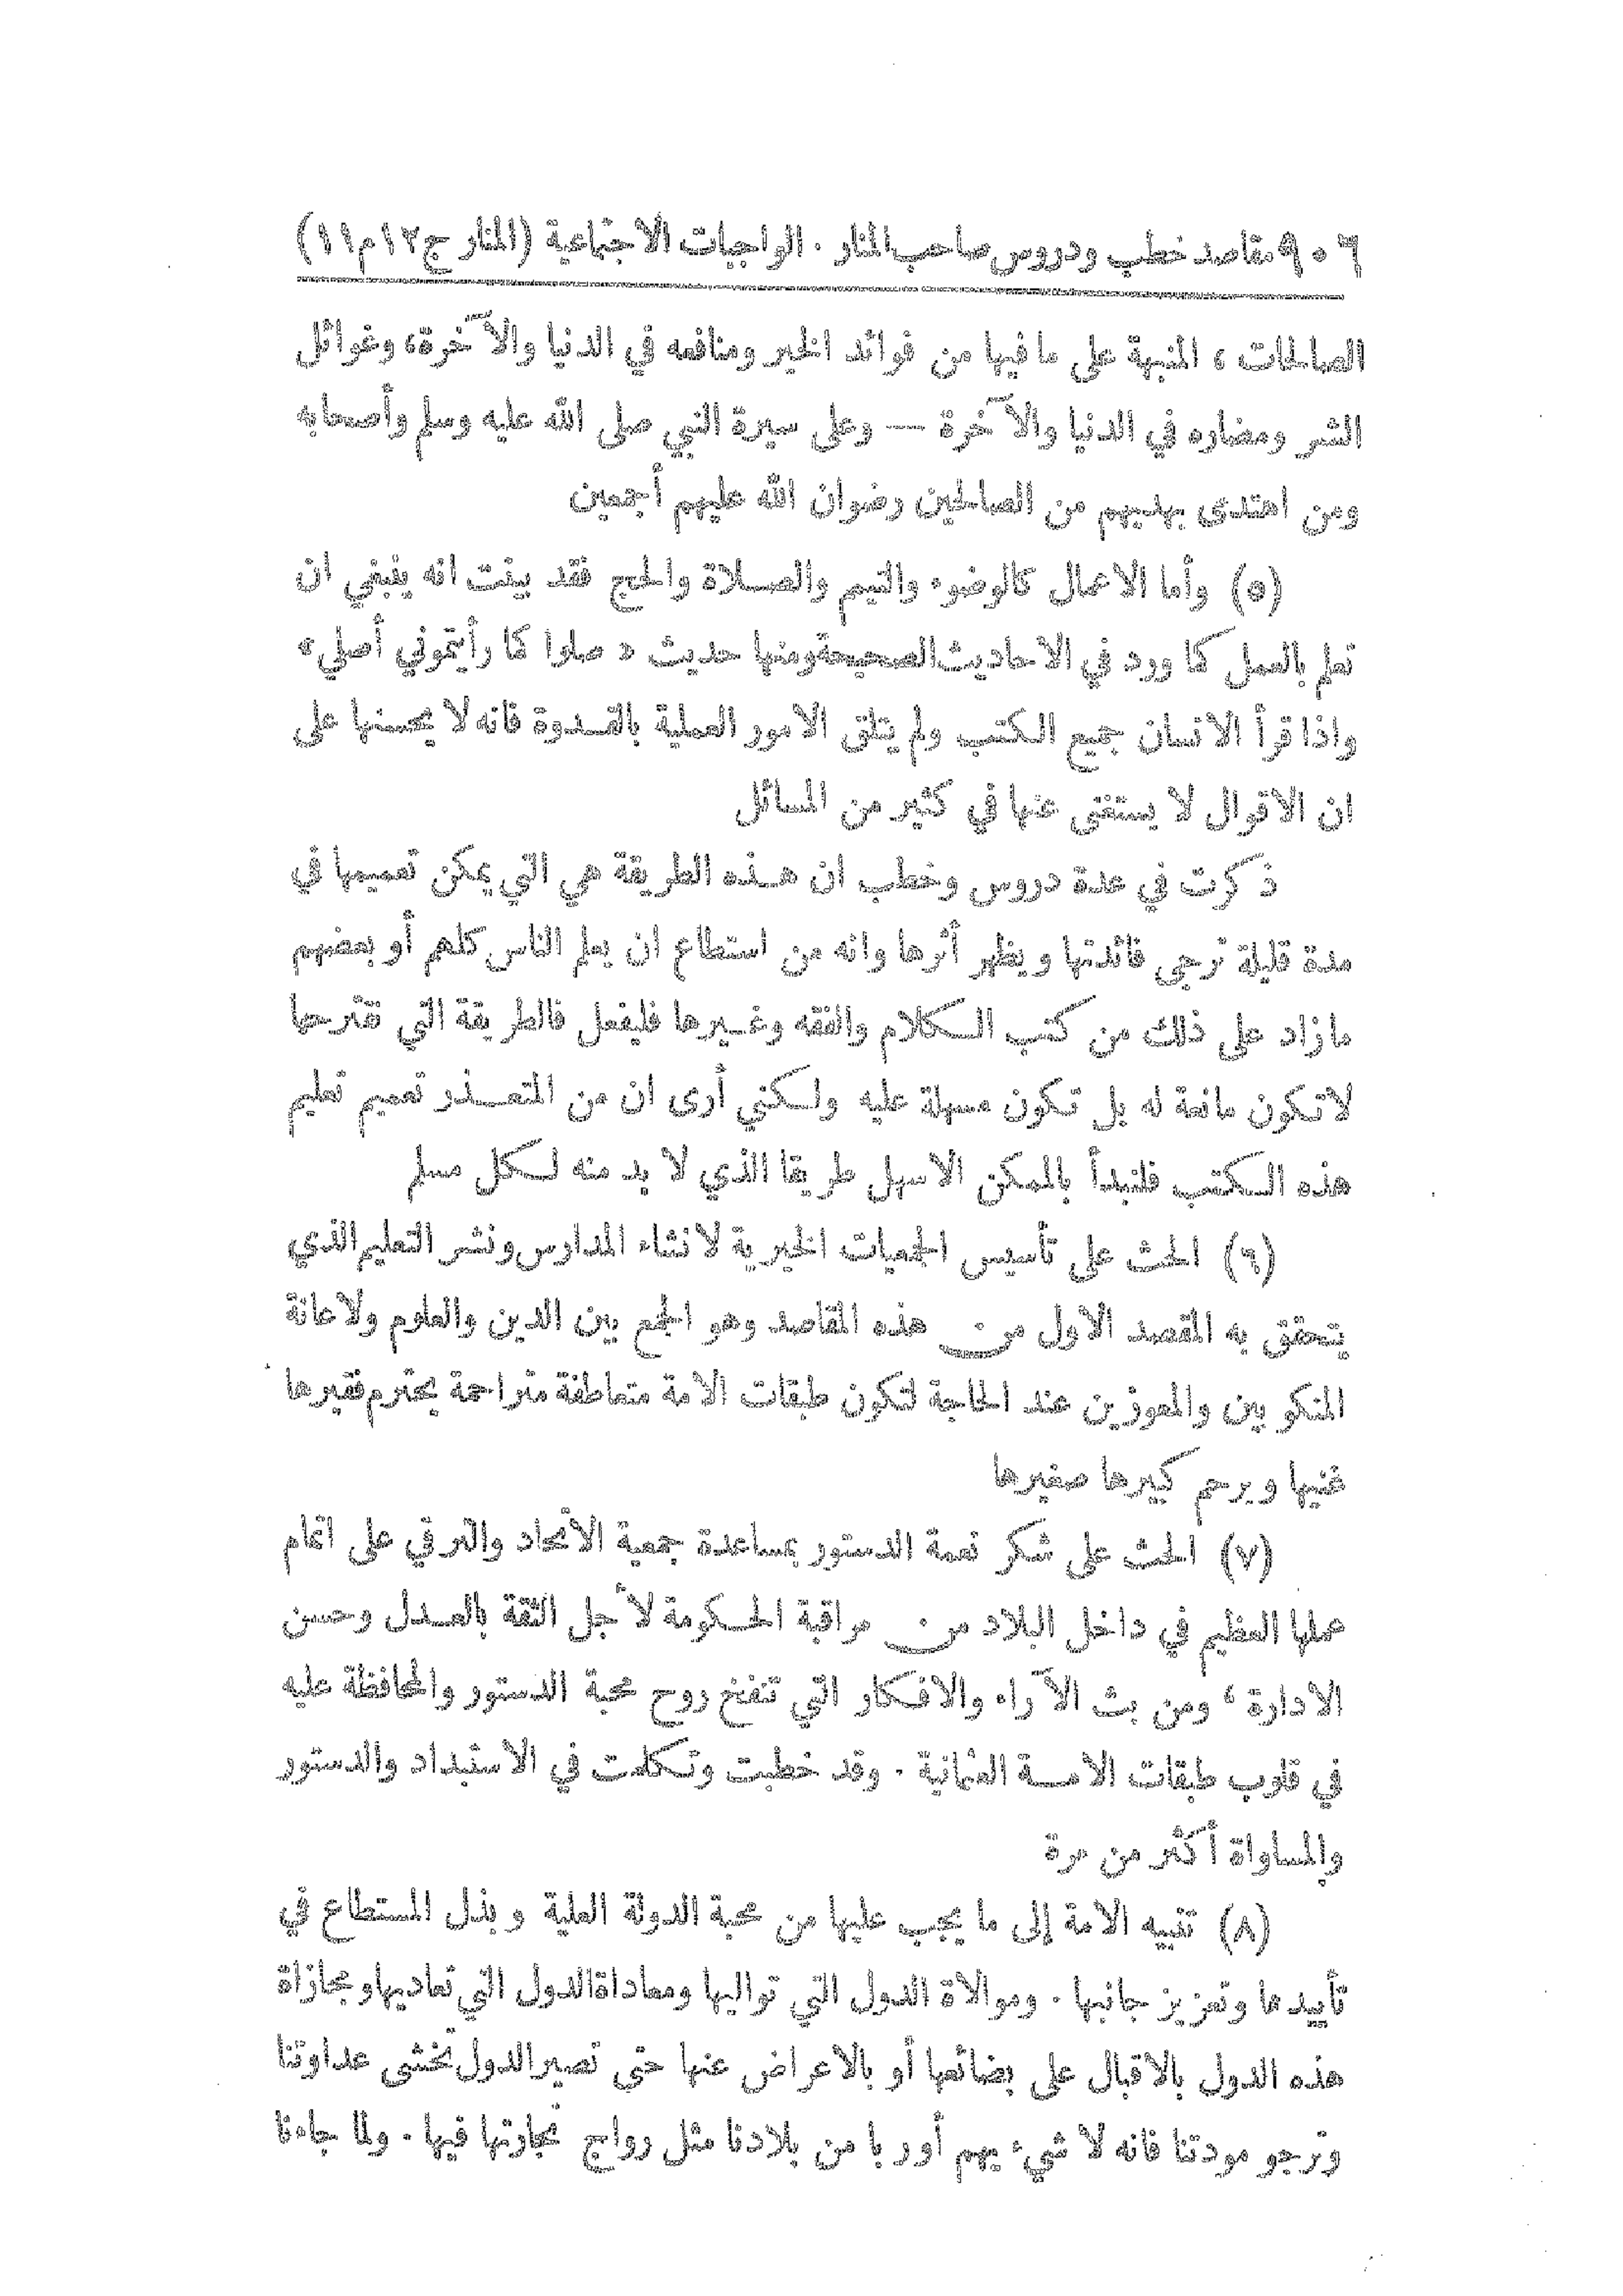 ٩٠٦ مقاصد خطب ودروس صاحب المنار . الواجبات الاجتماعية (المنار ج ١٢ م ١١)
الصالحات ، المنبهة على ما فيها من فوائد الخير ومنافعه في الدنيا والآخرة، وغوائل
الشر ومضاره في الدنيا والآخرة — وعلى سيرة النبي صلى الله عليه وسلم وأصحابه
ومن اهتدى بهديهم من الصالحين رضوان الله عليهم أجمعين
(٥) وأما الاعمال كالوضوء والتيمم والصلاة والحج فقد بينت انه ينبغي ان
تعلم بالعمل كما ورد في الاحاديث الصحيحة ومنها حديث « صلوا كما رأيتموني أصلي»
واذا قرأ الانسان جميع الكتب ولم يتلق الامور العملية بالقدوة فانه لا يحسنها على
ان الاقوال لا يستغنى عنها في كثير من المسائل
ذكرت في عدة دروس وخطب ان هذه الطريقة هي التي يمكن تعميمها في
مدة قليلة ترجى فائدتها ويظهر أثرها وانه من استطاع ان يعلم الناس كلهم أو بعضهم
ما زاد على ذلك من كتب الكلام والفقه وغيرها فليفعل فالطريقة التي نقترحها
لا تكون مانعة له بل تكون مسهلة عليه ولكني أرى ان من المتعذر تعميم تعليم
هذه الكتب فلنبدأ بالممكن الاسهل طريقا الذي لا بد منه لكل مسلم
(٦) الحث على تأسيس الجمعيات الخيرية لانشاء المدارس ونشر التعليم الذي
يتحقق به المقصد الاول من هذه المقاصد وهو الجمع بين الدين والعلوم ولاعانة
المنكوبين والمعوزين عند الحاجة لتكون طبقات الامة متعاطفة متراحمة يحترم فقيرها
غنيها ويرحم كبيرها صغيرها
(٧) الحث على شكر نعمة الدستور بمساعدة جمعية الاتحاد والترقي على اتمام
عملها العظيم في داخل البلاد من مراقبة الحكومة لأجل الثقة بالعدل وحسن
الادارة ، ومن بث الآراء والافكار التي تنفخ روح محبة الدستور والمحافظة عليه
في قلوب طبقات الامة العثمانية . وقد خطبت وتكلمت في الاستبداد والدستور
والمساواة أكثر من مرة
(٨) تنبيه الامة إلى ما يجب عليها من محبة الدولة العلية وبذل المستطاع في
تأييدها وتعزيز جانبها . وموالاة الدول التي تواليها ومعاداة الدول التي تعاديها ومجازاة
هذه الدول بالاقبال على بضائعها أو بالاعراض عنها حتى تصير الدول تخشى عداوتنا
وترجو مودتنا فانه لا شيء يهم أوربا من بلادنا مثل رواج تجارتها فيها . ولما جاءنا